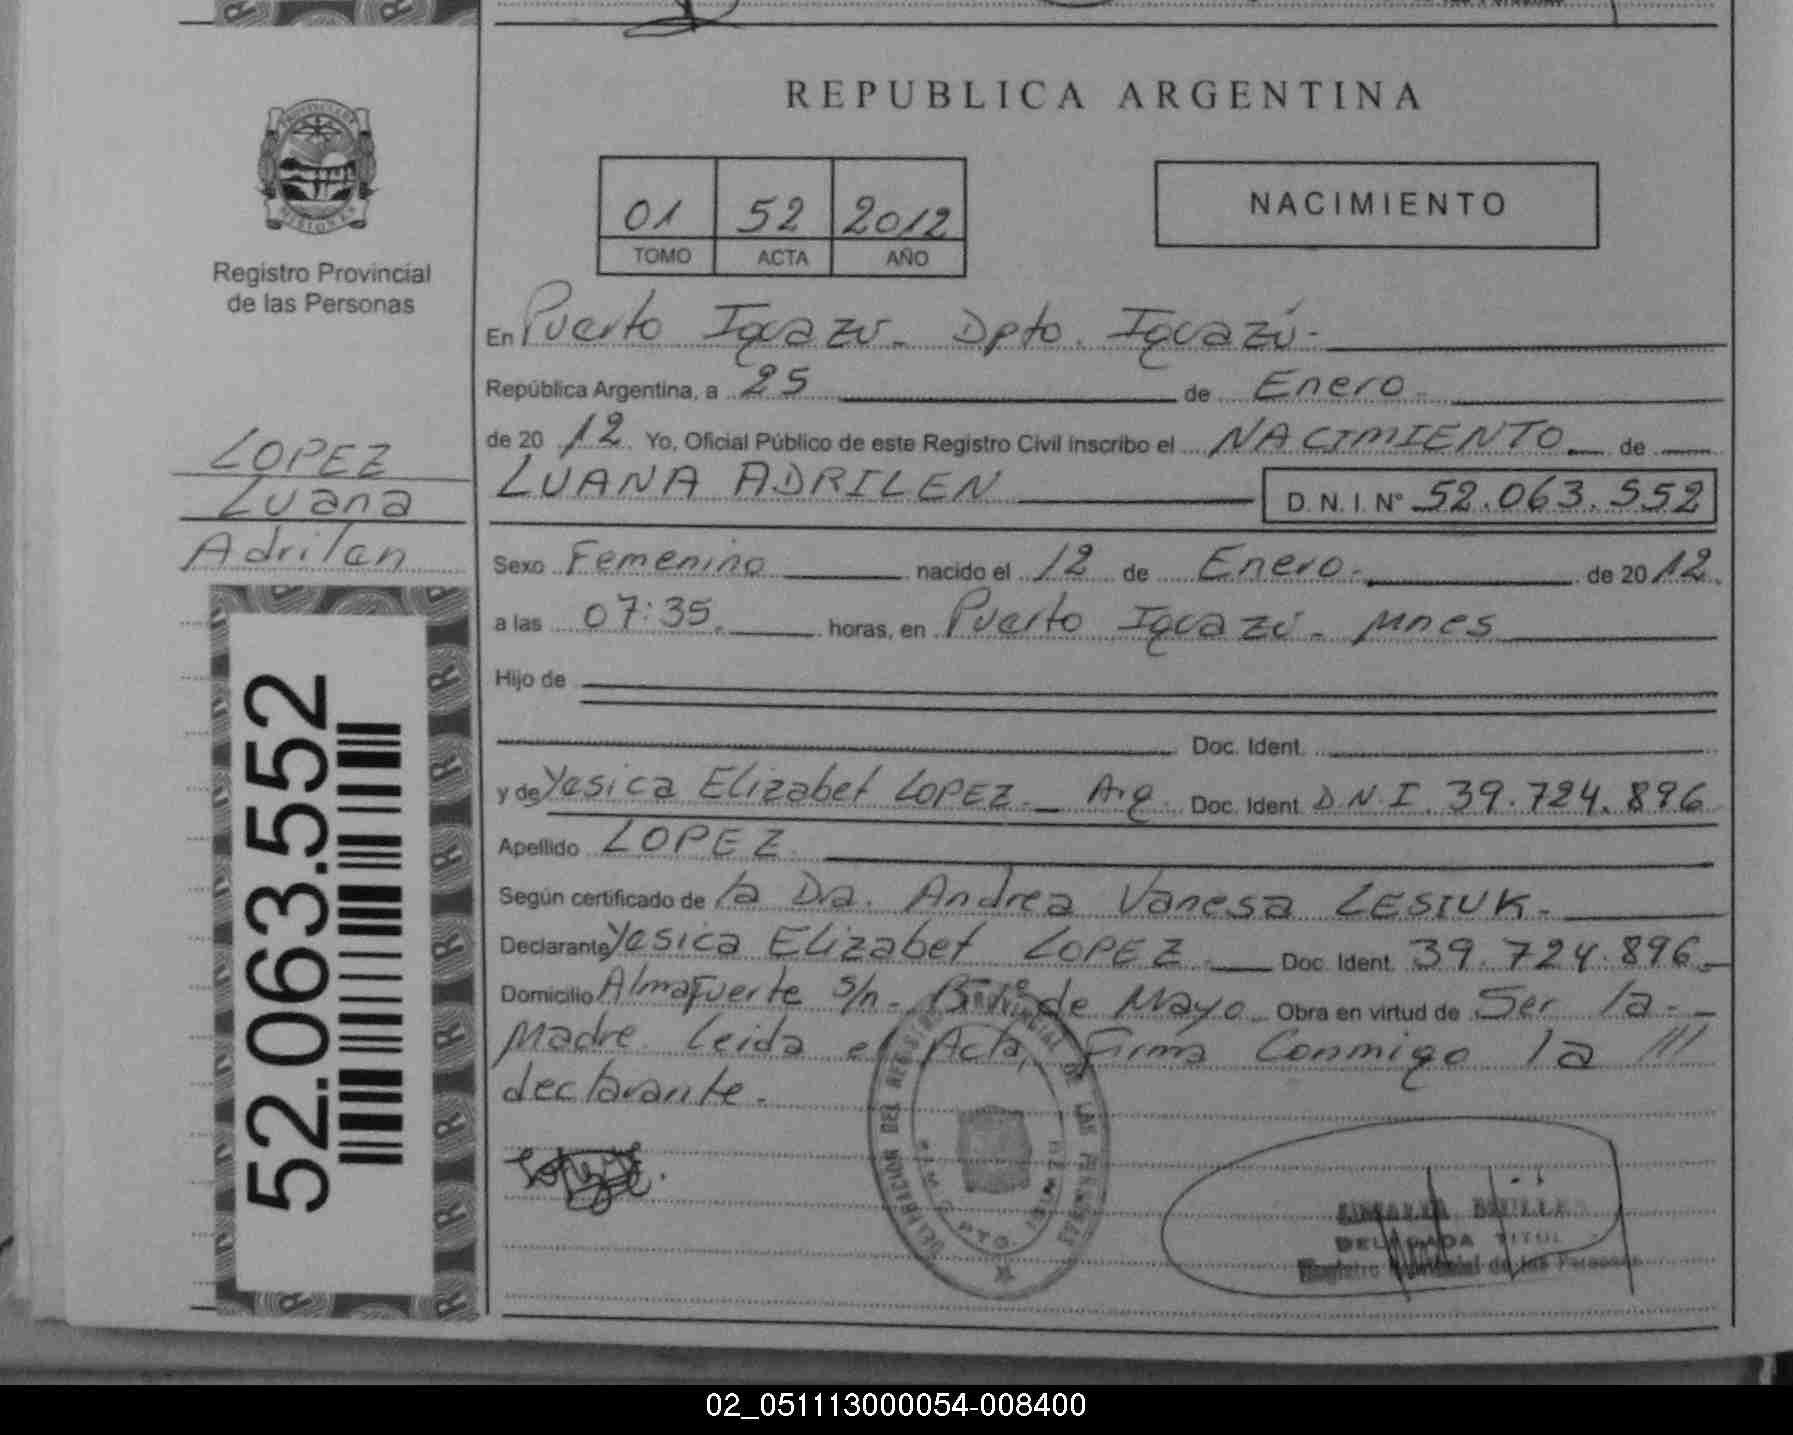 REPUBLICA ARGENTINA
01 52 2012
TOMO ACTA AÑO
NACIMIENTO
Registro Provincial
de las Personas
LOPEZ
Luana
Adrilen
52.063.552
En Puerto Iguazú - Dpto. Iguazú -
República Argentina, a 25 de Enero
de 20 12 Yo, Oficial Público de este Registro Civil inscribo el NACIMIENTO de
LUANA ADRILEN D. N. I. N° 52.063.552
Sexo Femenino nacido el 12 de Enero. de 20 12.
a las 07:35. horas, en Puerto Iguazú - Mnes
Hijo de
Doc. Ident.
y de Yesica Elizabet LOPEZ. Arg. Doc. Ident. D.N.I. 39.724.896
Apellido LOPEZ
Según certificado de la Dra. Andrea Vanesa LESIUK.
Declarante Yesica Elizabet LOPEZ. Doc. Ident. 39.724.896.
Domicilio Almafuerte s/n - B° 1° de Mayo. Obra en virtud de Ser la -
Madre Leida el Acta, Firma Conmigo la ///
declarante.
DELEGADA TITUL
Registro Provincial de las Personas
02_051113000054-008400